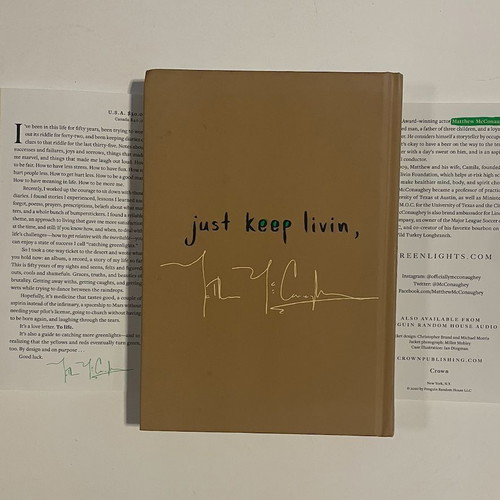 U.S.A. $30.0
I've been in this life for fifty years, been trying to wor
out its riddle for forty-two, and been keeping diaries
clues to that riddle for the last thirty-five. Notes abou
successes and failures, joys and sorrows, things that mad
me marvel, and things that made me laugh out loud. How
to be fair. How to have less stress. How to have fun. How
hurt people less. How to get hurt less. How to be a good
How to have meaning in life. How to be more me.
Recently, I worked up the courage to sit down with thos
diaries. I found stories I experienced, lessons I learned an
forgot, poems, prayers, prescriptions, beliefs about what ma
ters, and a whole bunch of bumperstickers. I found a reliable
theme, an approach to living that gave me more satisfaction
at the time, and still: If you know how, and when, to deal with
life's challenges—how to get relative with the inevitable—you
can enjoy a state of success I call "catching greenlights."
So I took a one-way ticket to the desert and wrote
you hold now: an album, a record, a story of my life
This is fifty years of my sights and seens, felts and figured
outs, cools and shamefuls. Graces, truths, and beauties of
brutality. Getting away withs, getting caughts, and getting
wets while trying to dance between the raindrops.
Hopefully, it's medicine that tastes good, a couple of
aspirin instead of the infirmary, a spaceship to Mars without
needing your pilot's license, going to church without having
to be born again, and laughing through the tears.
It's a love letter. To life.
It's also a guide to catching more greenlights—and
realizing that the yellows and reds eventually turn green
too. By design and on purpose . . .
Good luck.
just keep livin,
Award-winning actor Matthew McConaug
ed man, a father of three children, and a loya
. He considers himself a storyteller by occup
it's okay to have a beer on the way to the tem
er with a day's sweat on him, and is an aspi
l conductor.
009, Matthew and his wife, Camila, founded
livin Foundation, which helps at-risk high sc
make healthier mind, body, and spirit cho
McConaughey became a professor of practic
ersity of Texas at Austin, as well as Minister
M.O.C. for the University of Texas and the City
cConaughey is also brand ambassador for Linc
ompany, an owner of the Major League Soccer
C, and co-creator of his favorite bourbon on
Wild Turkey Longbranch.
REENLIGHTS.COM
Instagram: @officiallymcconaughey
Twitter: @McConaughey
Facebook.com/MatthewMcConaughey
ALSO AVAILABLE FROM
GUIN RANDOM HOUSE AUDIO
ket design: Christopher Brand and Michael Morris
Jacket photograph: Miller Mobley
Case illustration: Ian Hingman
CROWNPUBLISHING.COM
Crown
New York, N.Y.
© 2020 by Penguin Random House LLC